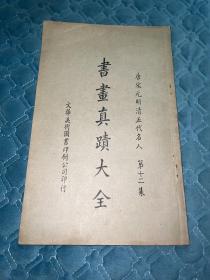 唐宋元明清五代名人 第十二集
書畫真蹟大全
文華美術圖書印刷公司印行